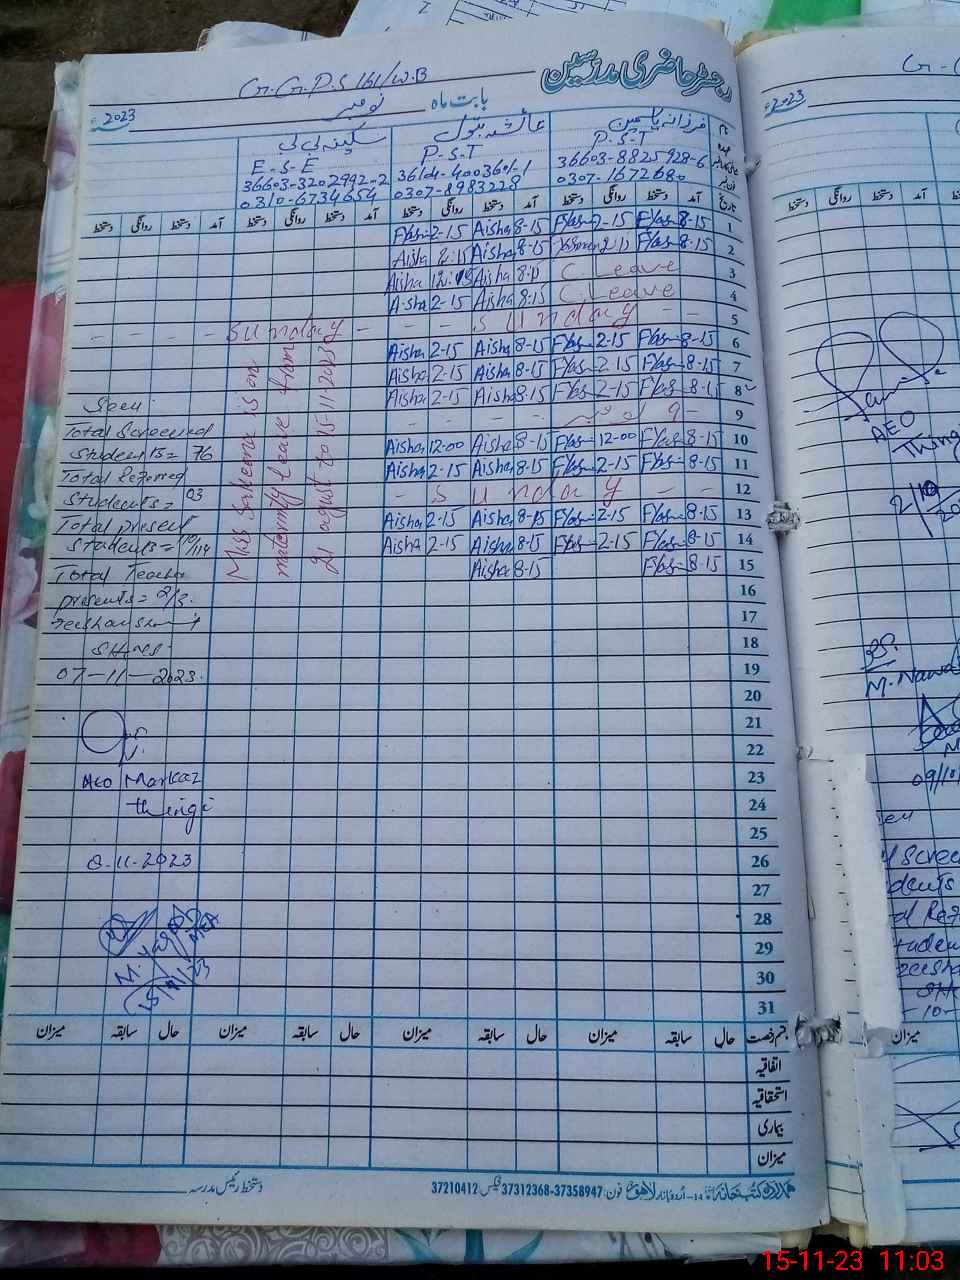 رجسٹر حاضری مدرسین
G.G.P.S 161/W.B
بابت ماہ نومبر 2023ء
فرزانہ یاسمین عائشہ بتول سکینہ بی بی
P.S.T P-S-T E-S-E
36603-8825928-6 36603-3202992-2
0307-1672680 0307-8983228 0310-6734654
تاریخ آمد دستخط روانگی دستخط آمد دستخط روانگی دستخط آمد دستخط روانگی دستخط آمد دستخط روانگی دستخط
1 8-15 F/Yas 2-15 F/Yas 8-15 Aisha 2-15
2 8-15 F/Yas 8-15 Aisha 2:15 Aisha
3 C. Leave 8-15 Aisha Aisha
4 C. Leave 8-15 Aisha 2-15 Aisha
5 - - Sunday - - - Sunday - - -
6 8-15 F/Yas 2-15 F/Yas 8-15 Aisha 2-15 Aisha
7 8-15 F/Yas 2-15 F/Yas 8-15 Aisha 2-15 Aisha
8 8-15 F/Yas 2-15 F/Yas 8-15 Aisha 2-15 Aisha
9 - 9 نومبر - - -
10 8-15 F/Yas 12-00 F/Yas 8-15 Aisha 12-00 Aisha
11 8-15 F/Yas 2-15 F/Yas 8-15 Aisha 2-15 Aisha
12 - - Sunday -
13 8-15 F/Yas 2-15 F/Yas 8-15 Aisha 2-15 Aisha
14 8-15 F/Yas 2-15 F/Yas 8-15 Aisha 2-15 Aisha
15 8-15 F/Yas 8-15 Aisha
16
17
18
19
20
21
22
23
24
25
26
27
28
29
30
31
Miss Sakeena is on
maternity leave from
21 august to 15-11-2023
Seen
Total Screened
Students = 76
Total Referred
Students = 03
Total present
Students =
Total Teacher
presents = 2/3
07-11-2023
AEO Markaz
thingi
8-11-2023
M. Yaqoob
MEA
15/11/23
قسم رخصت حال سابقہ میزان حال سابقہ میزان حال سابقہ میزان حال سابقہ میزان
اتفاقیہ
استحقاقیہ
بیماری
میزان
ہمدرد کتب خانہ 14-اردو بازار لاہور فون: 37358947-37312368 فیکس: 37210412
دستخط رئیس مدرسہ
2023ء
دستخط روانگی دستخط
AEO
M. Nawa
09/10/
میزان
15-11-23 11:03